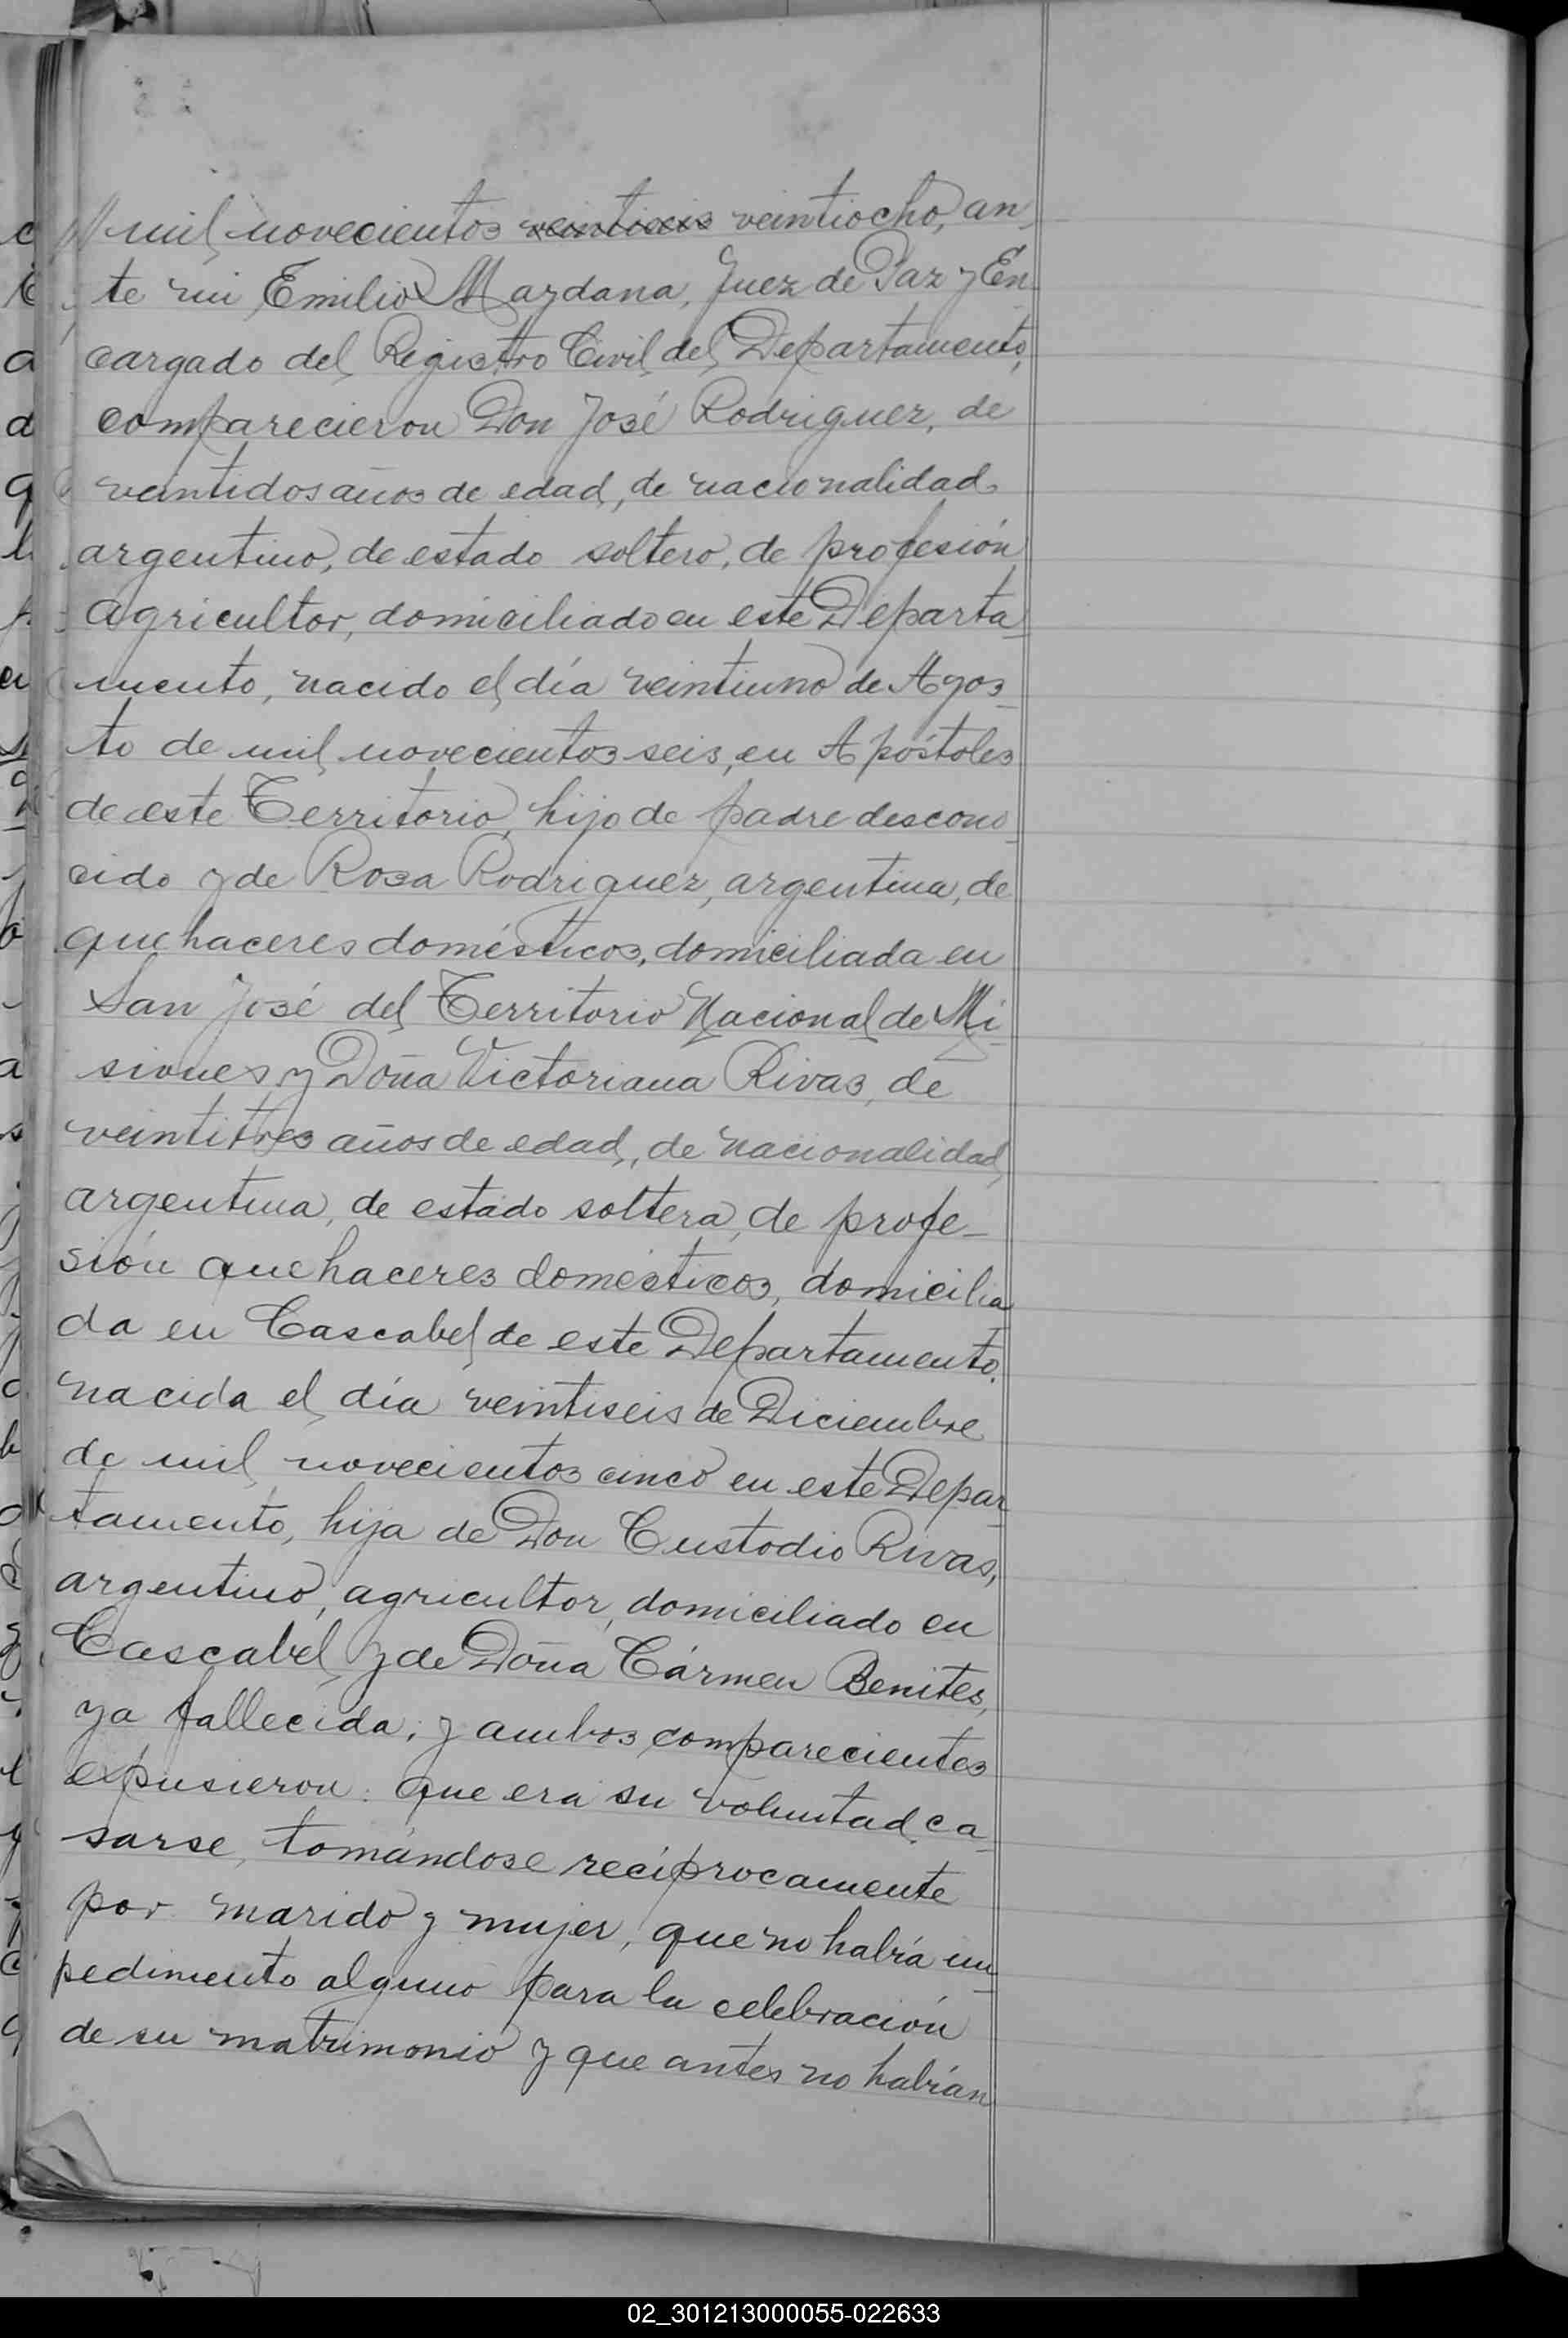 mil novecientos veintiseis veintiocho, an-
te mi Emilio Maydana, Juez de Paz y En-
cargado del Registro Civil del Departamento,
comparecieron Don José Rodriguez, de
veintidos años de edad, de nacionalidad
argentino, de estado soltero, de profesión
agricultor, domiciliado en este Departa-
mento, nacido el día veintiuno de Agos-
to de mil novecientos seis, en Apóstoles
de este Territorio, hijo de padre descono-
cido y de Rosa Rodriguez, argentina, de
quehaceres domésticos, domiciliada en
San José del Territorio Nacional de Mi-
siones y Doña Victoriana Rivas, de
veintitres años de edad, de nacionalidad
argentina, de estado soltera, de profe-
sión quehaceres domésticos, domicilia-
da en Cascabel de este Departamento.
nacida el día veintiseis de Diciembre
de mil novecientos cinco en este Depar-
tamento, hija de Don Custodio Rivas,
argentino, agricultor, domiciliado en
Cascabel y de Doña Cármen Benites,
ya fallecida; y ambos comparecientes
expusieron: que era su voluntad ca-
sarse, tomándose recíprocamente
por marido y mujer, que no habría im-
pedimento alguno para la celebración
de su matrimonio y que antes no habían
02_301213000055-022633